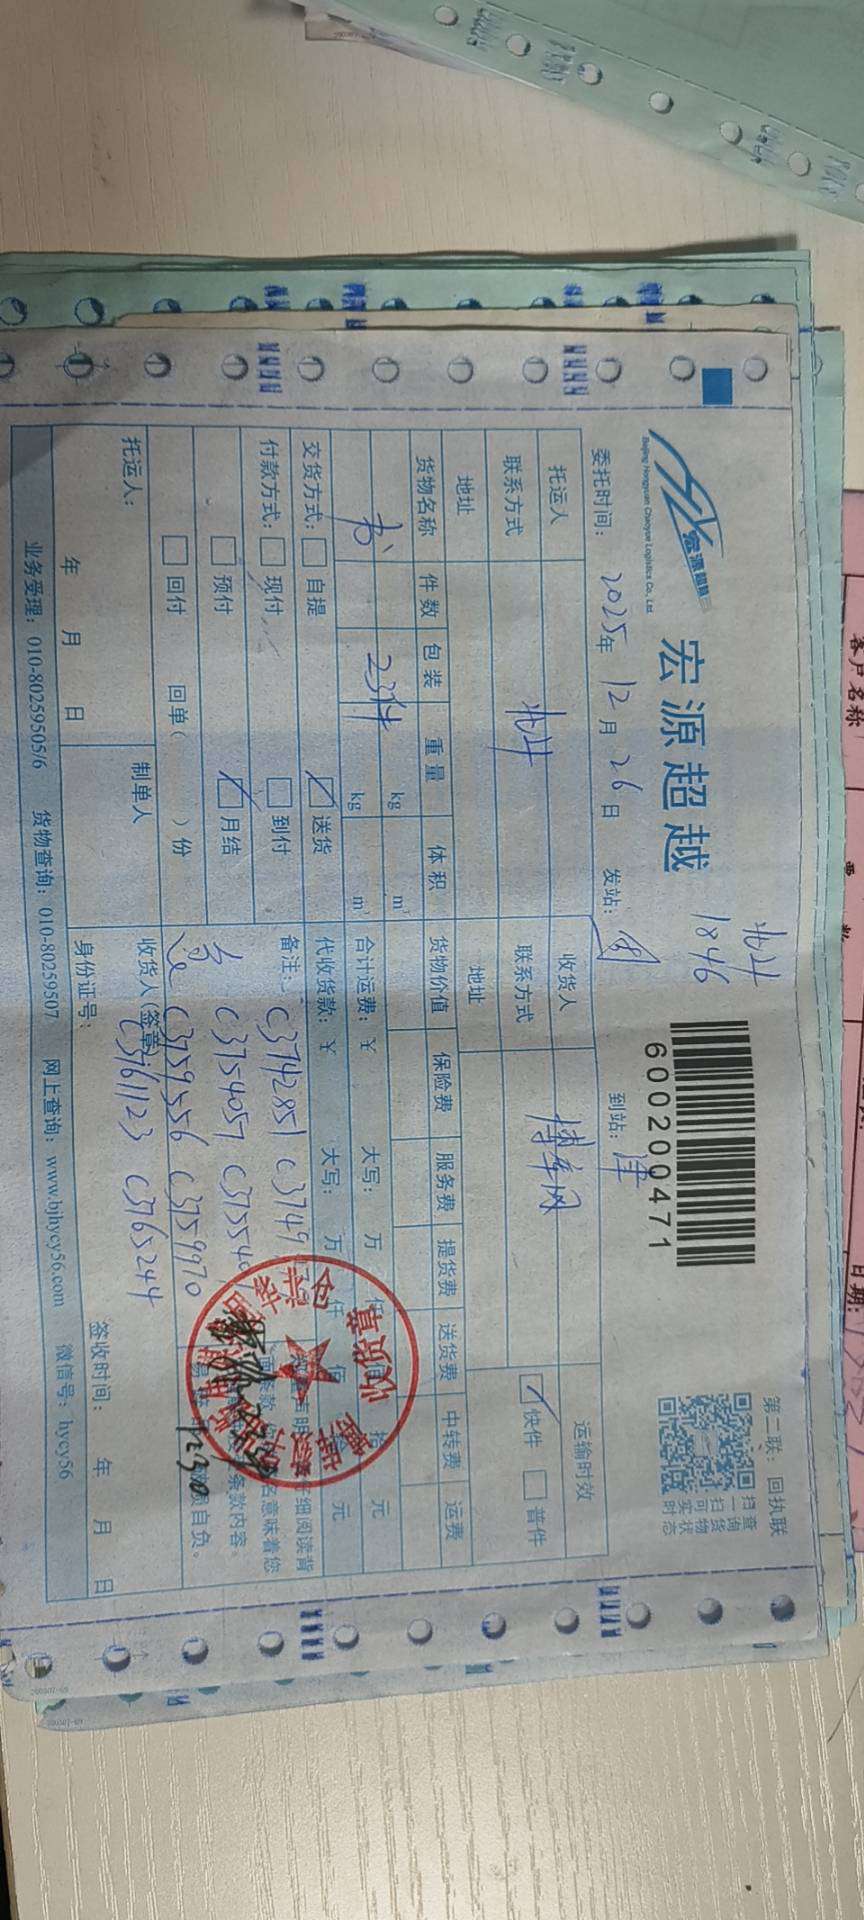 北斗
1846
宏源超越
宏源超越
Beijing Hongyuan Chaoyue Logistics Co., Ltd.
600200471
第二联：回执联
扫一扫 可实时
查询货物状态
委托时间： 2025年 12月 26日 发站： 到站： 津
托运人 收货人 运输时效
联系方式 北斗 联系方式 博库网 快件 普件
地址 地址
货物名称 件数 包装 重量 体积 货物价值 保险费 服务费 提货费 送货费 中转费 运费
kg m³
书 23件 kg m³ 合计运费：￥ 大写： 万 仟 拾 元
交货方式： 自提 送货 代收货款：￥ 大写： 万 仟 佰 元
付款方式： 现付 到付 备注： C3742851 C3749
预付 月结 C3754057 C37554
回付 回单（ ）份 C3759556 C3759970
C3761123 C3765244
细阅读背
名意味着您
条款内容。
自负。
收货章
1230
托运人： 制单人 收货人(签章)
年 月 日 身份证号： 签收时间： 年 月 日
业务受理：010-80259505/6 货物查询：010-80259507 网上查询：www.bjhycy56.com 微信号：hycy56
客户名称
日期：